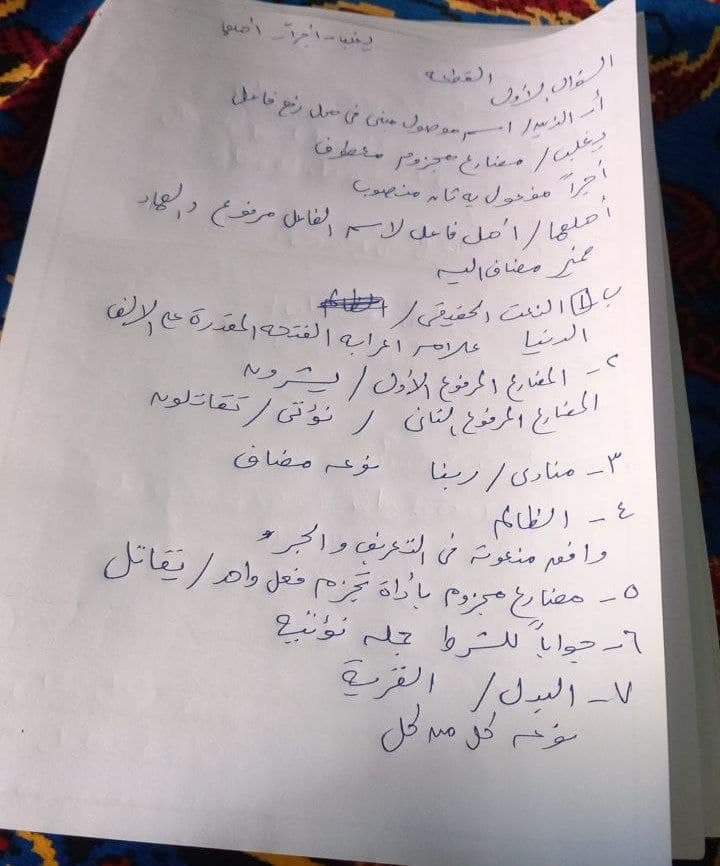 يغلب - أجراً - أهلها
السؤال الأول القطعة
أ- الذين / اسم موصول مبنى فى محل رفع فاعل
يغلب / مضارع مجزوم معطوف
أجراً مفعول به ثان منصوب
أهلها / أهل فاعل لاسم الفاعل مرفوع والهاء
ضمير مضاف اليه
ب ١ النعت الحقيقى /
الدنيا علامه اعرابه الفتحه المقدرة على الالف
٢- المضارع المرفوع الأول / يشرون
المضارع المرفوع الثانى / نؤتى / تقاتلون
٣- منادى / ربنا نوعه مضاف
٤- الظالم
وافق منعوته فى التعريف والجر
٥- مضارع مجزوم بأداة تجزم فعل واحد / يقاتل
٦- جواباً للشرط جمله نؤتيه
٧- البدل / القرية
نوعه كل من كل